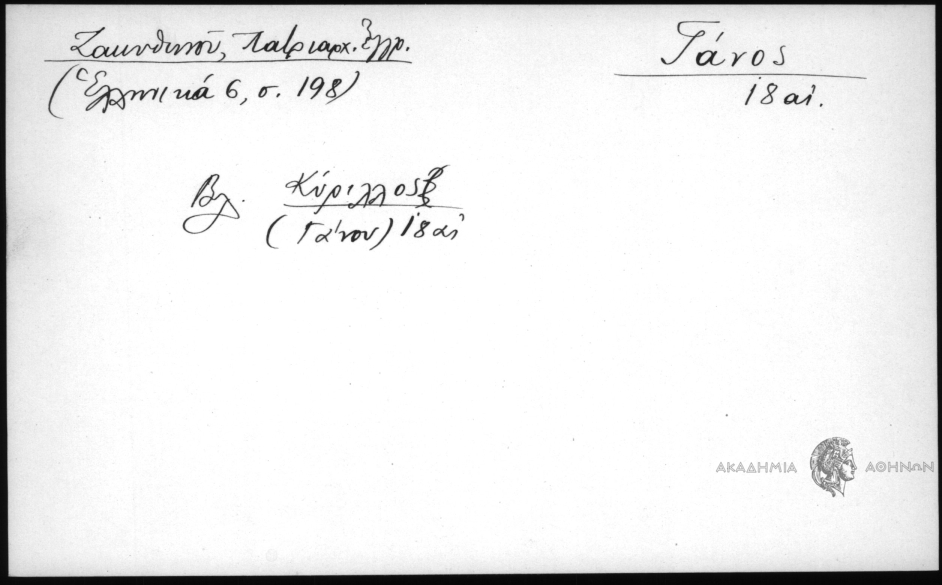 Ζακυνθινοῦ, Πατριαρχ. Ἔγγρ.
(Ἑλληνικά 6, σ. 198)
Γάνος
18 αἰ.
Βλ. Κύριλλος
(Γάνου) 18 αἰ
ΑΚΑΔΗΜΙΑ ΑΘΗΝΩΝ